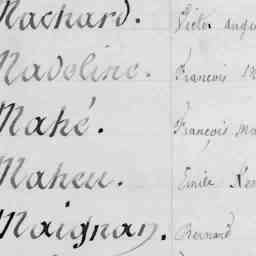 Machard. Victor Augu
Madeline. François
Mahé. François Ma
Maheu. Emile Ren
Maignan. Bernard